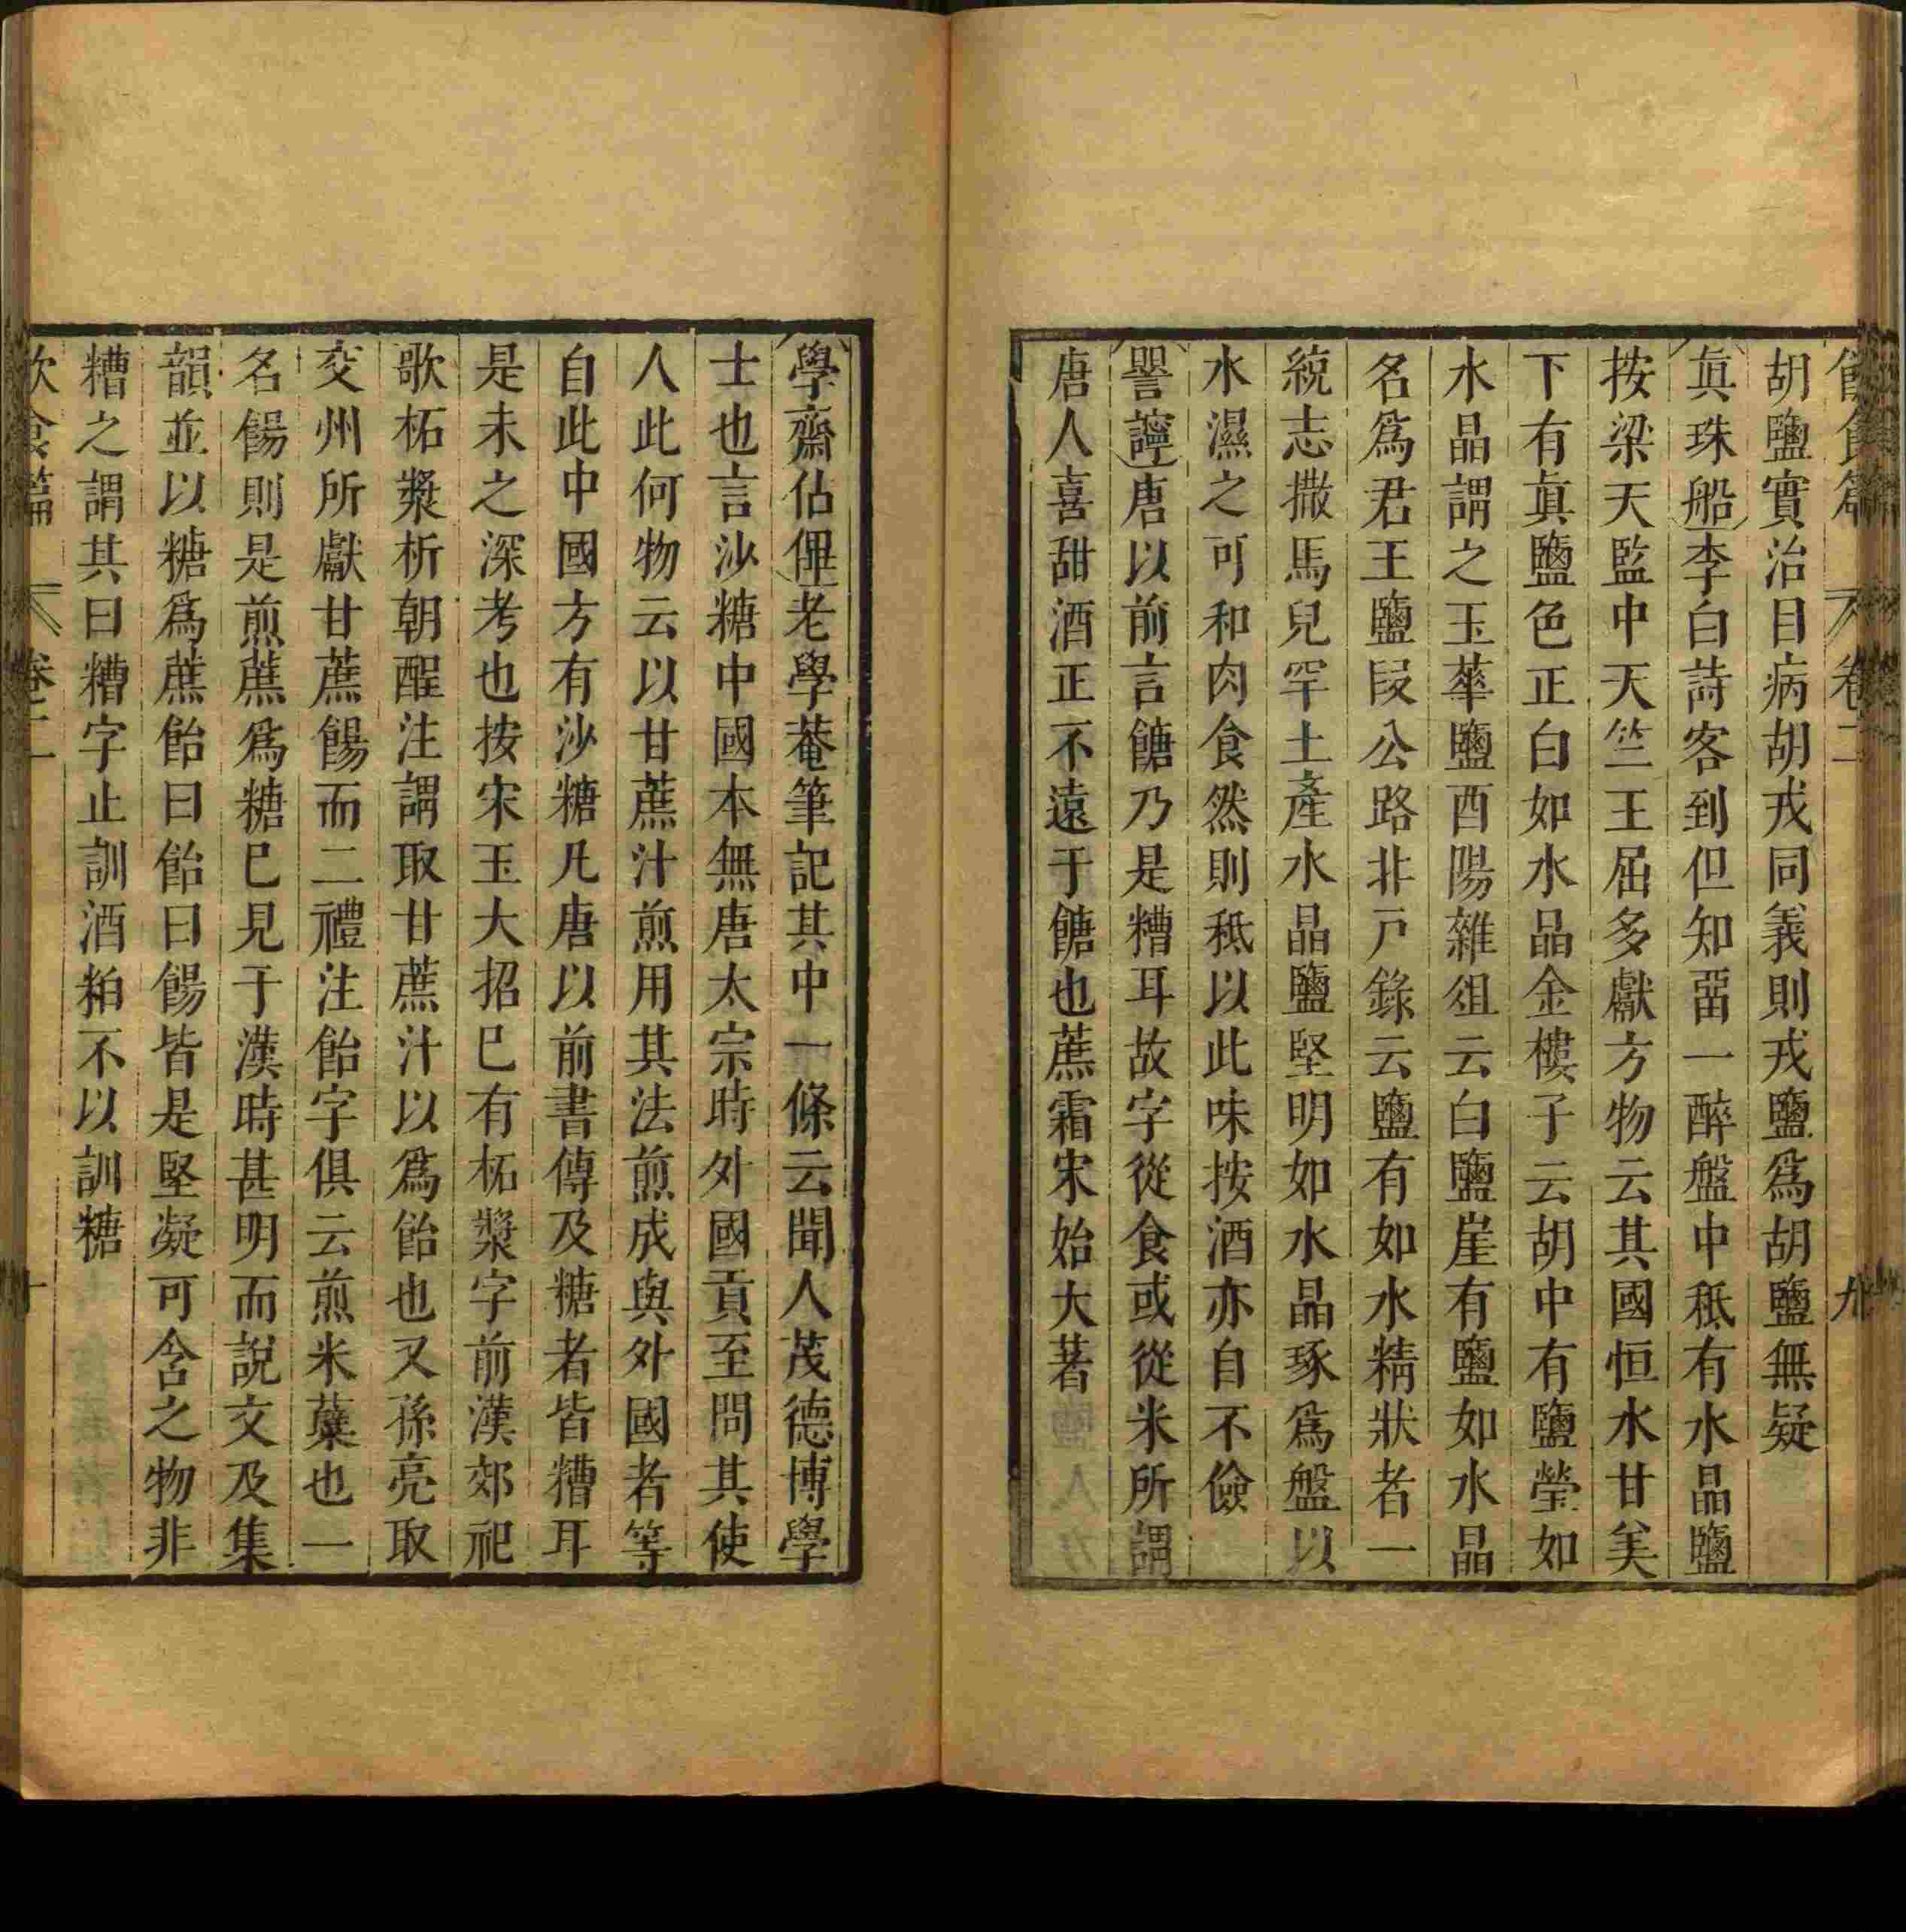 飲食篇 卷二 九
胡鹽實治目病胡戎同義則戎鹽爲胡鹽無疑
真珠船李白詩客到但知畱一醉盤中秪有水晶鹽
按梁天監中天竺王屈多獻方物云其國恒水甘美
下有眞鹽色正白如水晶金樓子云胡中有鹽瑩如
水晶謂之玉華鹽酉陽雜俎云白鹽崖有鹽如水晶
名爲君王鹽段公路非戸錄云鹽有如水精狀者一
統志撒馬兒罕土產水晶鹽堅明如水晶琢爲盤以
水濕之可和肉食然則秪以此味按酒亦自不儉
譻䜡唐以前言餹乃是糟耳故字從食或從米所謂
唐人喜甜酒正不遠于餹也蔗霜宋始大著
學齋佔俾老學菴筆記其中一條云聞人茂德博學
士也言沙糖中國本無唐太宗時外國貢至問其使
人此何物云以甘蔗汁煎用其法煎成與外國者等
自此中國方有沙糖凡唐以前書傳及糖者皆糟耳
是未之深考也按宋玉大招巳有柘漿字前漢郊祀
歌柘漿析朝酲注謂取甘蔗汁以爲飴也又孫亮取
交州所獻甘蔗餳而二禮注飴字俱云煎米蘗也一
名餳則是煎蔗爲糖巳見于漢時甚明而說文及集
韻並以糖爲蔗飴曰飴曰餳皆是堅凝可含之物非
糟之謂其曰糟字止訓酒粕不以訓糖
飲食篇 卷二 十